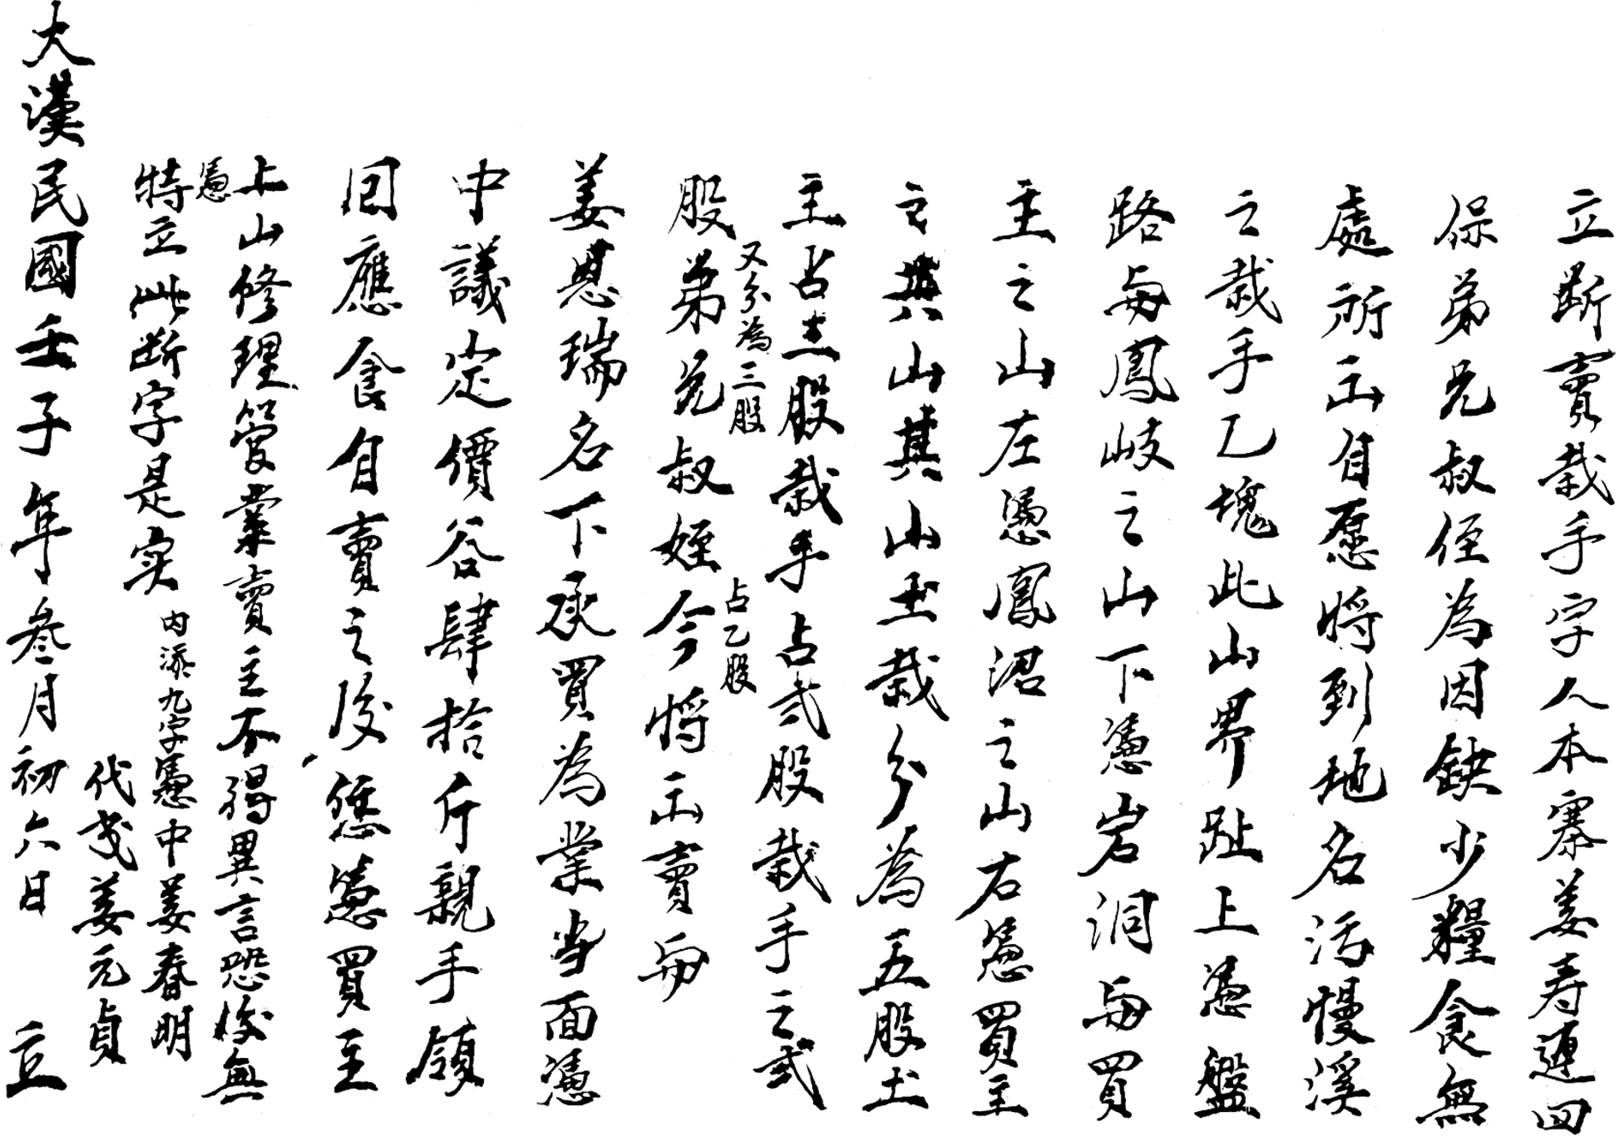 立断賣栽手字人本寨姜寿連四
保弟兄叔侄為因缺少糧食無
處所出自愿将到地名污慢溪
之栽手乙塊此山界趾上憑盤
路與鳳岐之山下憑岩洞與買
主之山左憑鳳沼之山右憑買主
之其山其山土栽分為五股土
主占叁股栽手占弍股栽手之弍
股弟兄叔姪今将出賣與
又分為三股
占乙股
姜恩瑞名下承買為業当面憑
中議定價谷肆拾斤親手領
回應食自賣之後恁憑買主
上山修理管業賣主不得異言恐後無
憑
特立此断字是实
内添九字憑中姜春明
代筆姜元貞
大漢民國壬子年叁月初六日 立